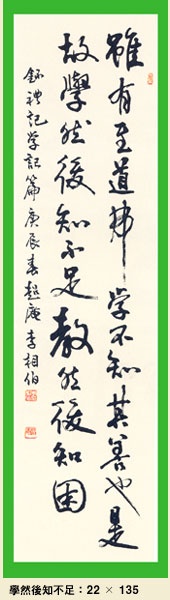 雖有至道弗學不知其善也是
故學然後知不足教然後知困
錄禮記学記篇 庚辰春 超庵 李相伯
學然後知不足：22 × 135